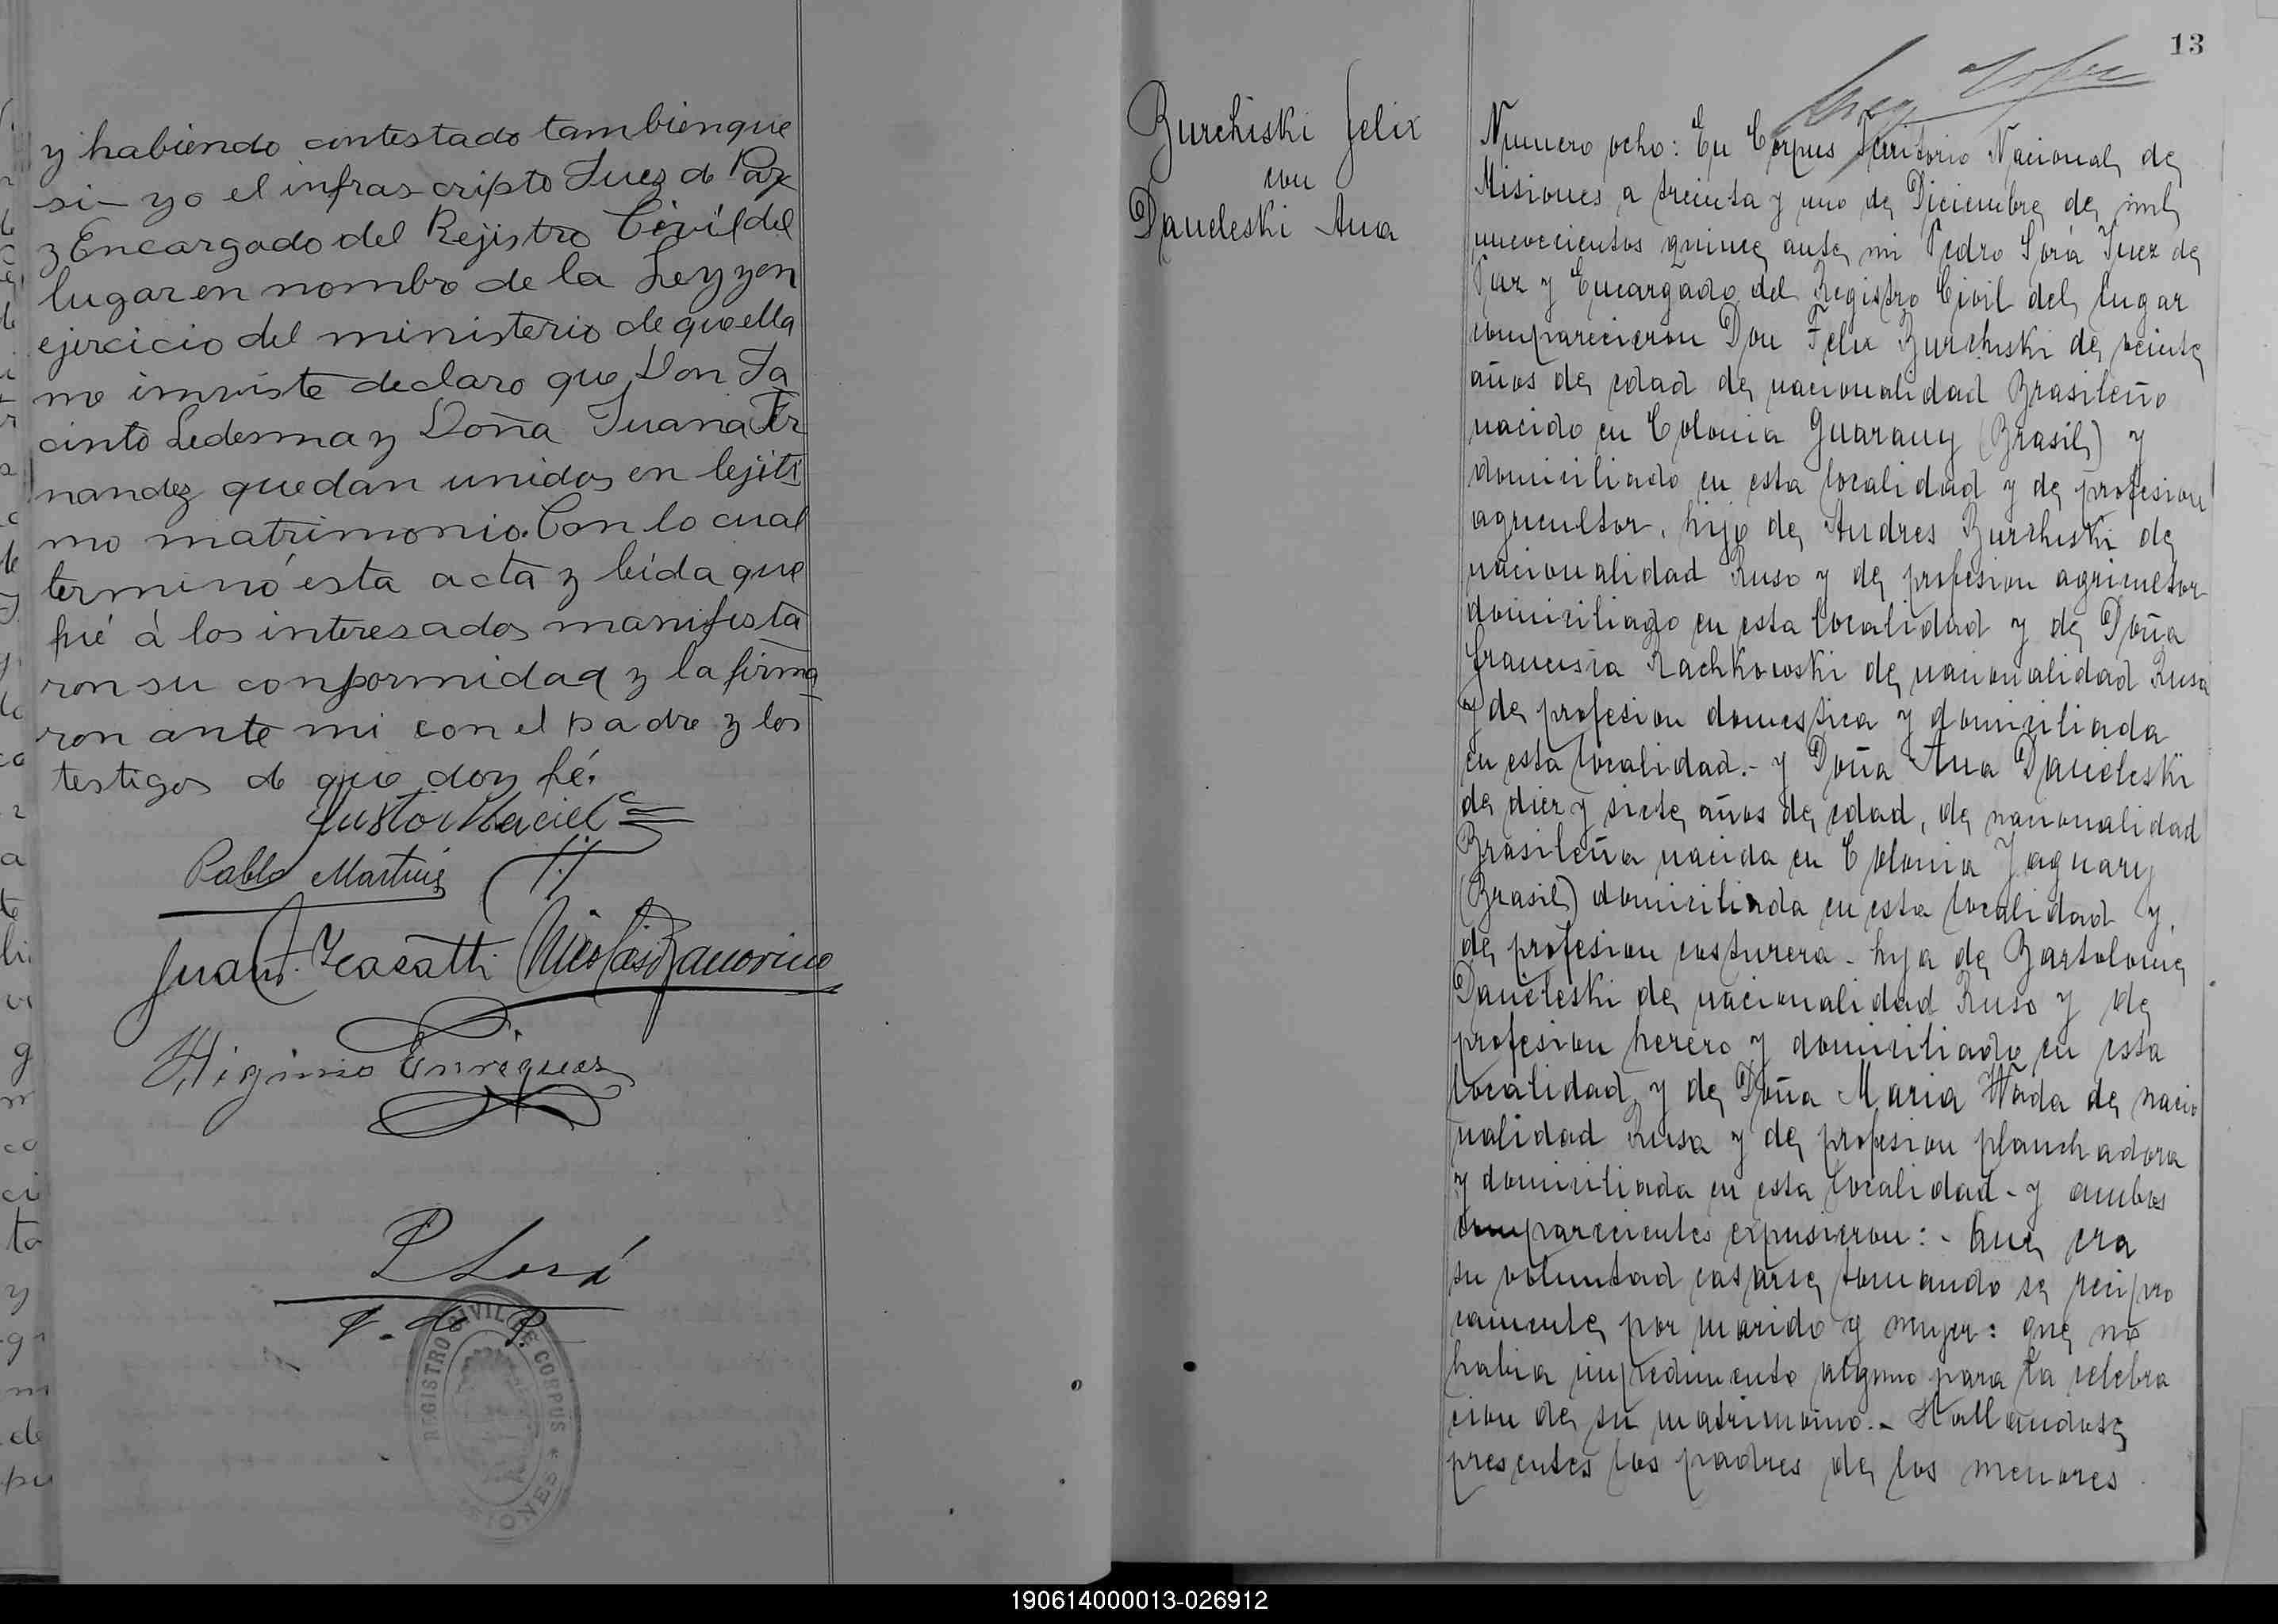 y habiendo contestado tambien que
si yo el infrascripto Juez de Paz
y Encargado del Rejistro Civil del
lugar en nombre de la Ley y en
ejercicio del ministerio de que ella
me inviste declaro que Don Ja
cinto Ledesma y Doña Juana Fer
nandez quedan unidos en lejiti
mo matrimonio. Con lo cual
terminó esta acta y leida que
fué á los interesados manifesta
ron su conformidad y la firma
ron ante mi con el padre y los
testigos de que doy fé.
Justo Maciel
Pablo Martinez
Juan
Nicolas
Higinio Enriquez
P Sorá
J. de P.
REGISTRO CIVIL DE CORPUS
MISIONES
13
Burchiski Felix
con
Daneleski Ana
Numero ocho: En Corpus Territorio Nacional de
Misiones a treinta y uno de Diciembre de mil
novecientos quince ante mi Pedro Sorá Juez de
Paz y Encargado del Registro Civil del lugar
comparecieron Don Felix Burchiski de veinte
años de edad de nacionalidad Brasileño
nacido en Colonia Guarany (Brasil) y
domiciliado en esta localidad y de profesion
agricultor, hijo de Andres Burchiski de
nacionalidad Ruso y de profesion agricultor
domiciliado en esta localidad y de Doña
Francisca Rachkowski de nacionalidad Rusa
y de profesion domestica y domiciliada
en esta localidad.- y Doña Ana Daneleski
de diez y siete años de edad, de nacionalidad
Brasileña nacida en Colonia Yaguary
(Brasil) domiciliada en esta localidad y
de profesion costurera - hija de Bartolome
Daneleski de nacionalidad Ruso y de
profesion herero y domiciliado en esta
localidad y de Doña Maria de nacio
nalidad Rusa y de profesion planchadora
y domiciliada en esta localidad - y ambos
comparecientes expusieron: - Que era
su voluntad casarse tomando se recipro
camente por marido y mujer: que no
habia impedimento alguno para la celebra
cion de su matrimonio.- Hallandose
presentes los padres de los menores
190614000013-026912